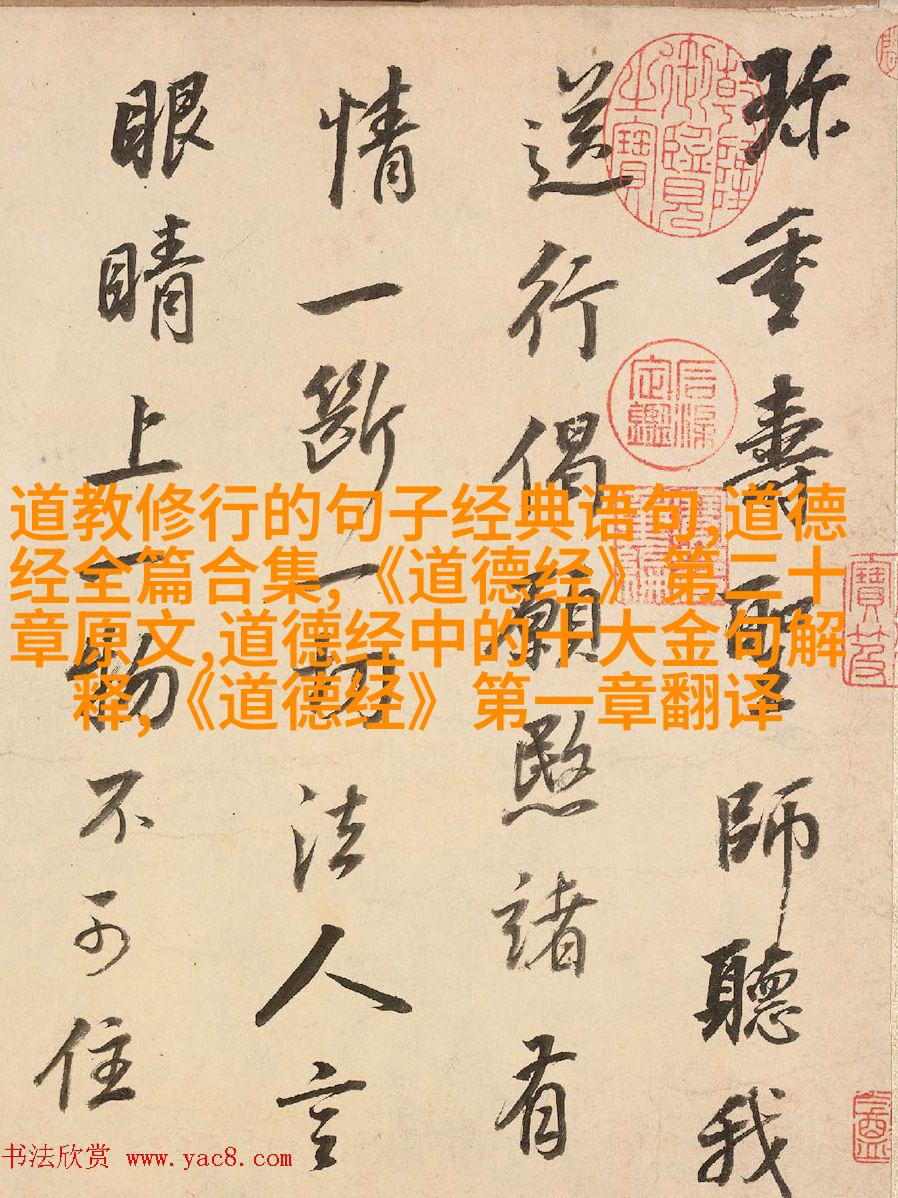 珎重壽聖師聽我
送行偈願愍諸有
情一斷一切法人言
眼睛上一物不可住
乾隆御覽之寶
石渠定鑑
道教修行的句子经典语句,道德
经全篇合集,《道德经》第二十
章原文,道德经中的十大金句解
释,《道德经》第一章翻译
书法欣赏 www.yac8.com